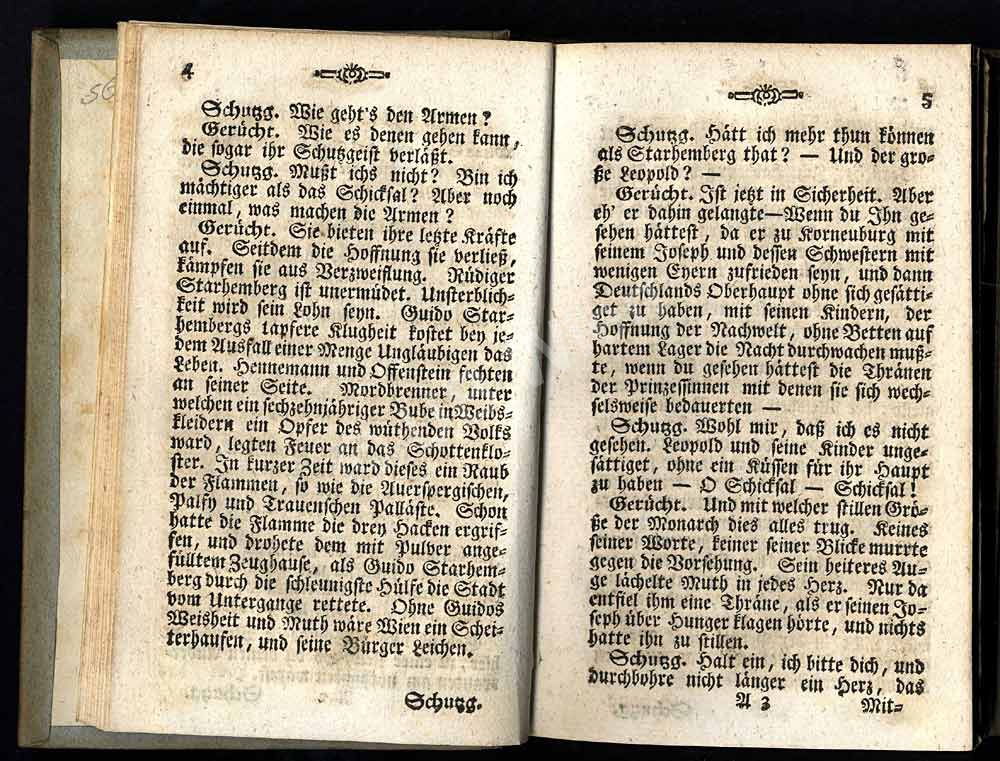 4
Schutzg. Wie geht's den Armen?
Gerücht. Wie es denen gehen kann,
die sogar ihr Schutzgeist verläßt.
Schutzg. Mußt ichs nicht? Bin ich
mächtiger als das Schicksal? Aber noch
einmal, was machen die Armen?
Gerücht. Sie bieten ihre letzte Kräfte
auf. Seitdem die Hoffnung sie verließ,
kämpfen sie aus Verzweiflung. Rüdiger
Starhemberg ist unermüdet. Unsterblich-
keit wird sein Lohn seyn. Guido Star-
hembergs tapfere Klugheit kostet bey je-
dem Ausfall einer Menge Ungläubigen das
Leben. Hennemann und Offenstein fechten
an seiner Seite. Mordbrenner, unter
welchen ein sechzehnjähriger Bube in Weibs-
kleidern ein Opfer des wüthenden Volks
ward, legten Feuer an das Schottenklo-
ster. In kurzer Zeit ward dieses ein Raub
der Flammen, so wie die Auerspergischen,
Palfy und Trauenschen Palläste. Schon
hatte die Flamme die drey Hacken ergrif-
fen, und drohete dem mit Pulver ange-
fülltem Zeughause, als Guido Starhem-
berg durch die schleunigste Hülfe die Stadt
vom Untergange rettete. Ohne Guidos
Weisheit und Muth wäre Wien ein Schei-
terhausen, und seine Bürger Leichen.
Schutzg.
5
Schutzg. Hätt ich mehr thun können
als Starhemberg that? — Und der gro-
ße Leopold? —
Gerücht. Ist jetzt in Sicherheit. Aber
eh' er dahin gelangte—Wenn du Ihn ge-
sehen hättest, da er zu Korneuburg mit
seinem Joseph und dessen Schwestern mit
wenigen Eyern zufrieden seyn, und dann
Deutschlands Oberhaupt ohne sich gesätti-
get zu haben, mit seinen Kindern, der
Hoffnung der Nachwelt, ohne Betten auf
hartem Lager die Nacht durchwachen muß-
te, wenn du gesehen hättest die Thränen
der Prinzessinnen mit denen sie sich wech-
selsweise bedauerten —
Schutzg. Wohl mir, daß ich es nicht
gesehen. Leopold und seine Kinder unge-
sättiget, ohne ein Küssen für ihr Haupt
zu haben — O Schicksal — Schicksal!
Gerücht. Und mit welcher stillen Grö-
ße der Monarch dies alles trug. Keines
seiner Worte, keiner seiner Blicke murrte
gegen die Vorsehung. Sein heiteres Au-
ge lächelte Muth in jedes Herz. Nur da
entfiel ihm eine Thräne, als er seinen Jo-
seph über Hunger klagen hörte, und nichts
hatte ihn zu stillen.
Schutzg. Halt ein, ich bitte dich, und
durchbohre nicht länger ein Herz, das
A 3 Mit-